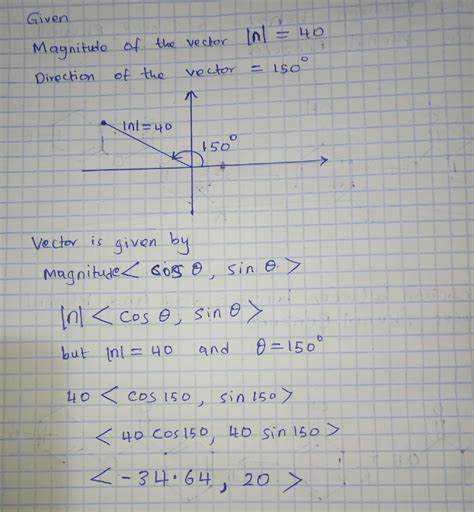 Given
Magnitude of the vector |n| = 40
Direction of the vector = 150°
|n|=40
150°
Vector is given by
Magnitude < cos θ, sin θ >
|n| < cos θ, sin θ >
but |n| = 40 and θ = 150°
40 < cos 150, sin 150 >
< 40 cos 150, 40 sin 150 >
< -34.64, 20 >